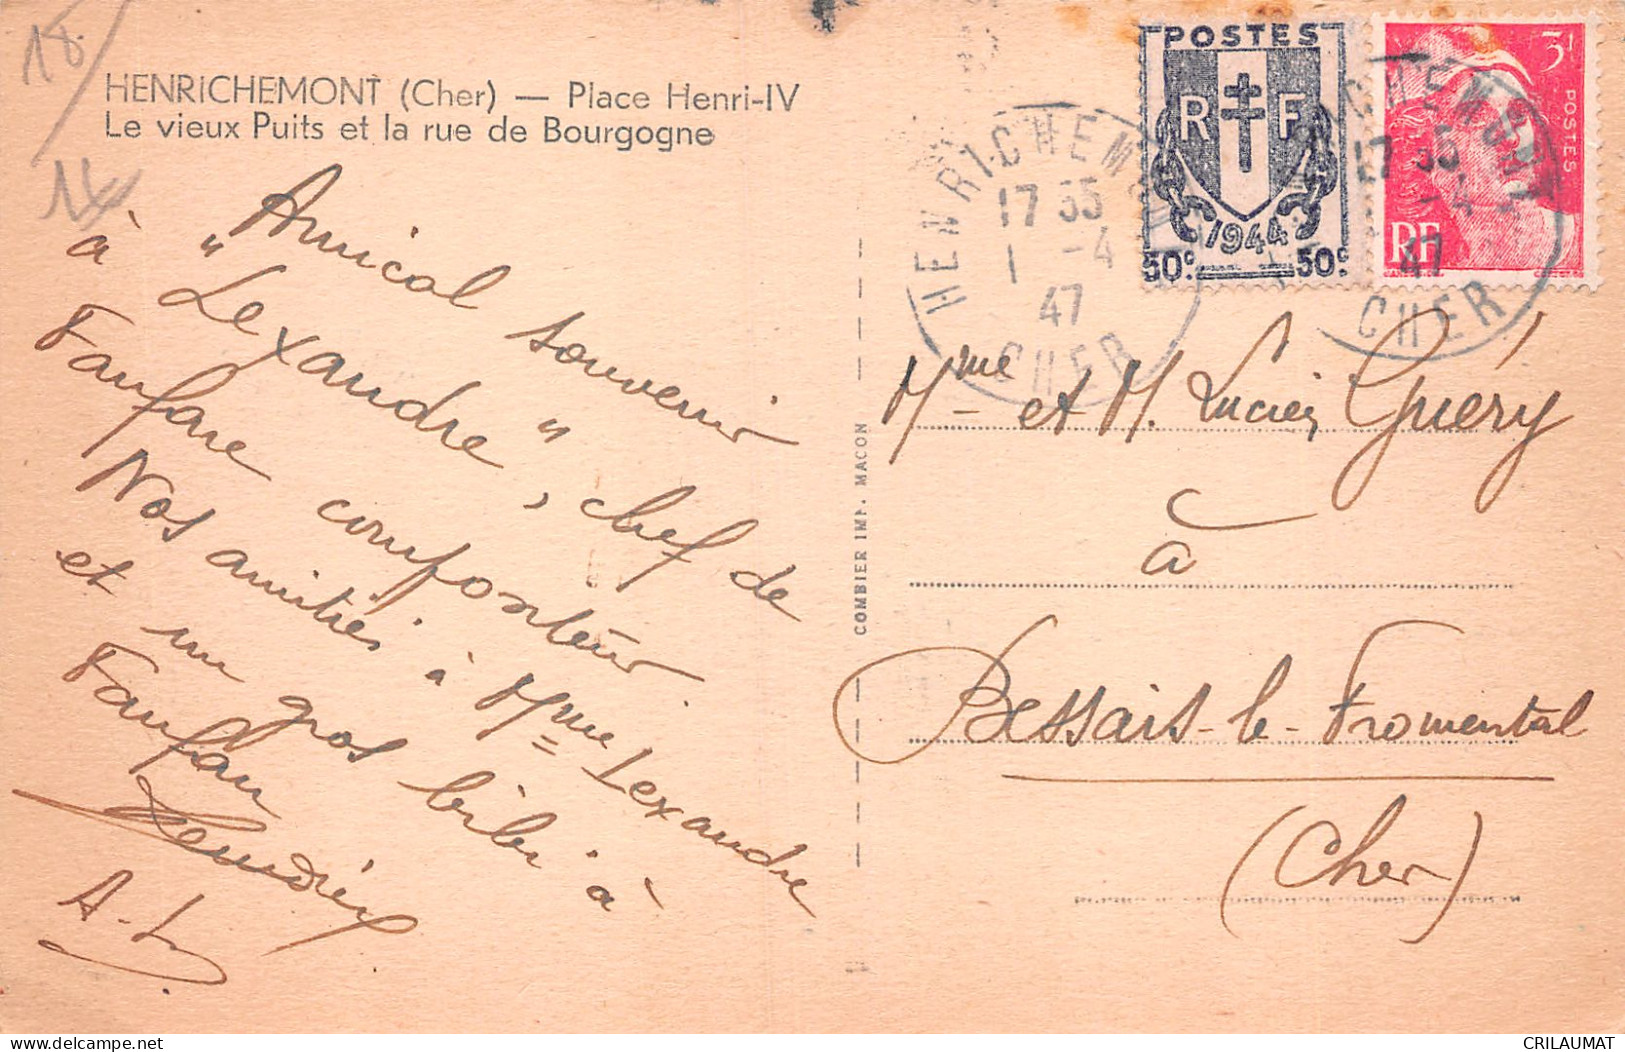 18
HENRICHEMONT (Cher) — Place Henri-IV
Le vieux Puits et la rue de Bourgogne
Amical souvenir
à "Lexandre", chef de
Fanfare
Nos amitiés à Mme Lexandre
et un gros bibi à
Fanfan
A.L.
COMBIER IMP. MACON
POSTES
RF
1944
50c 50c
3F
POSTES
RF
HENRICHEMONT
17 35
1 -4
47
CHER
HENRICHEMONT
17 35
-4
47
CHER
Mme et M. Lucien Guéry
à
Bessais-le-Fromental
(Cher)
CRILAUMAT